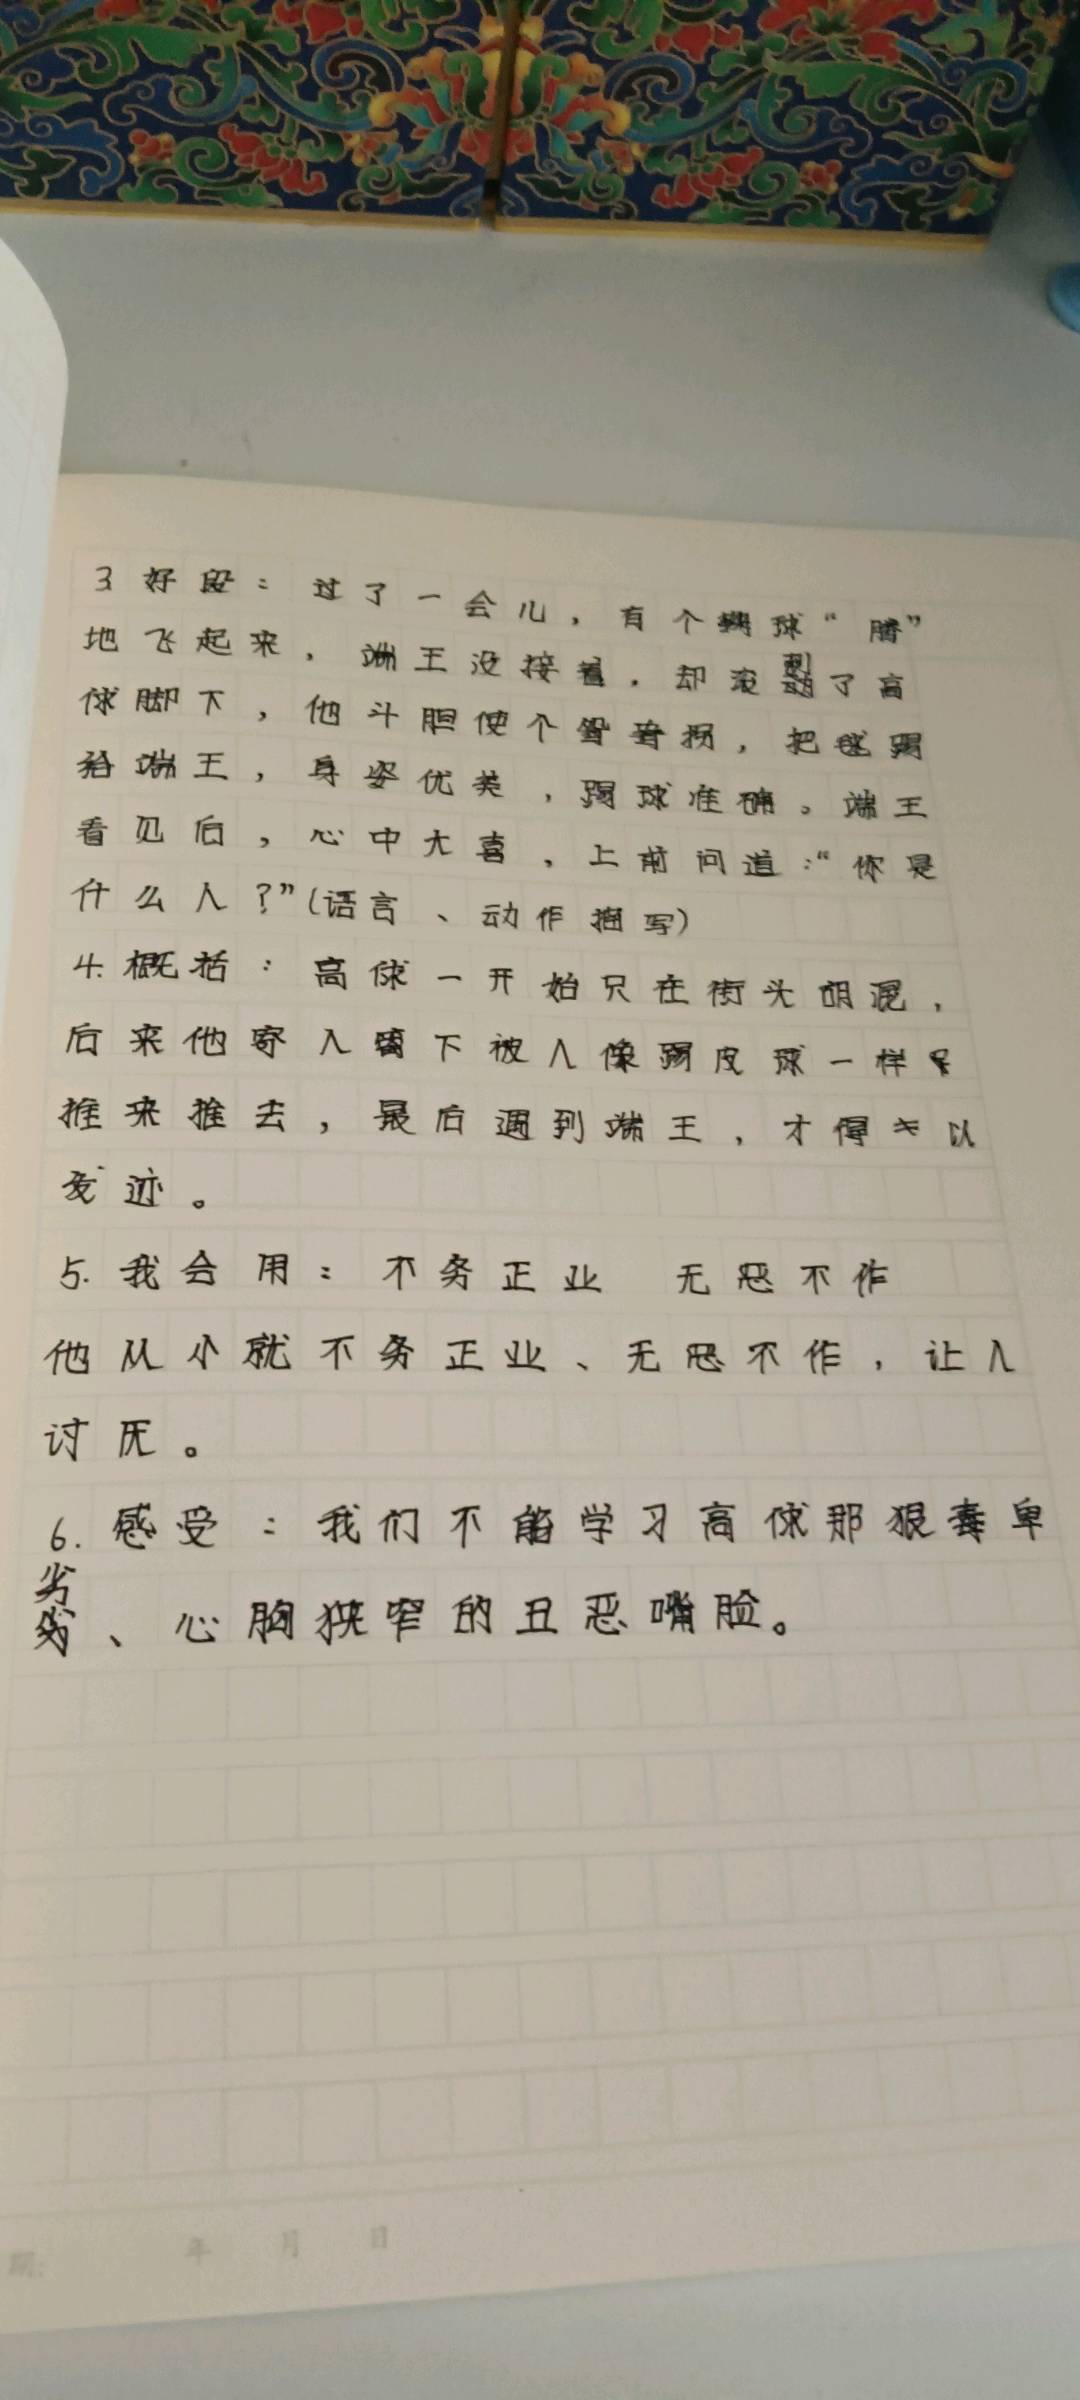 3. 好段：过了一会儿，有个球“腾”
地飞起来，端王没接着，却滚到了高
俅脚下，他斗胆使个鸳鸯拐，把毬踢
给端王，身姿优美，踢球准确。端王
看见后，心中大喜，上前问道：“你是
什么人？”（语言、动作描写）
4. 概括：高俅一开始只在街头胡混，
后来他寄人篱下被人像踢皮球一样
推来推去，最后遇到端王，才得以
发迹。
5. 我会用：不务正业 无恶不作
他从小就不务正业、无恶不作，让人
讨厌。
6. 感受：我们不能学习高俅那狠毒卑
劣、心胸狭窄的丑恶嘴脸。
期: 年 月 日